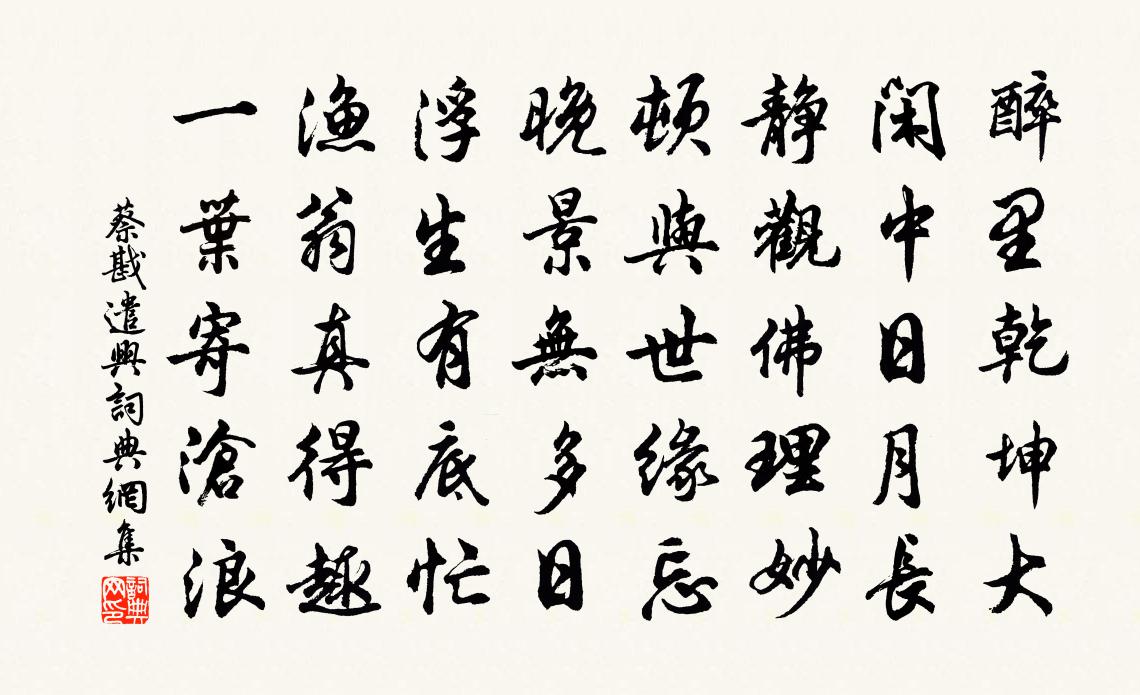 醉里乾坤大
閑中日月長
靜觀佛理妙
頓與世緣忘
晚景無多日
浮生有底忙
漁翁真得趣
一葉寄滄浪
蔡戡遣興詞典網集
詞典網印